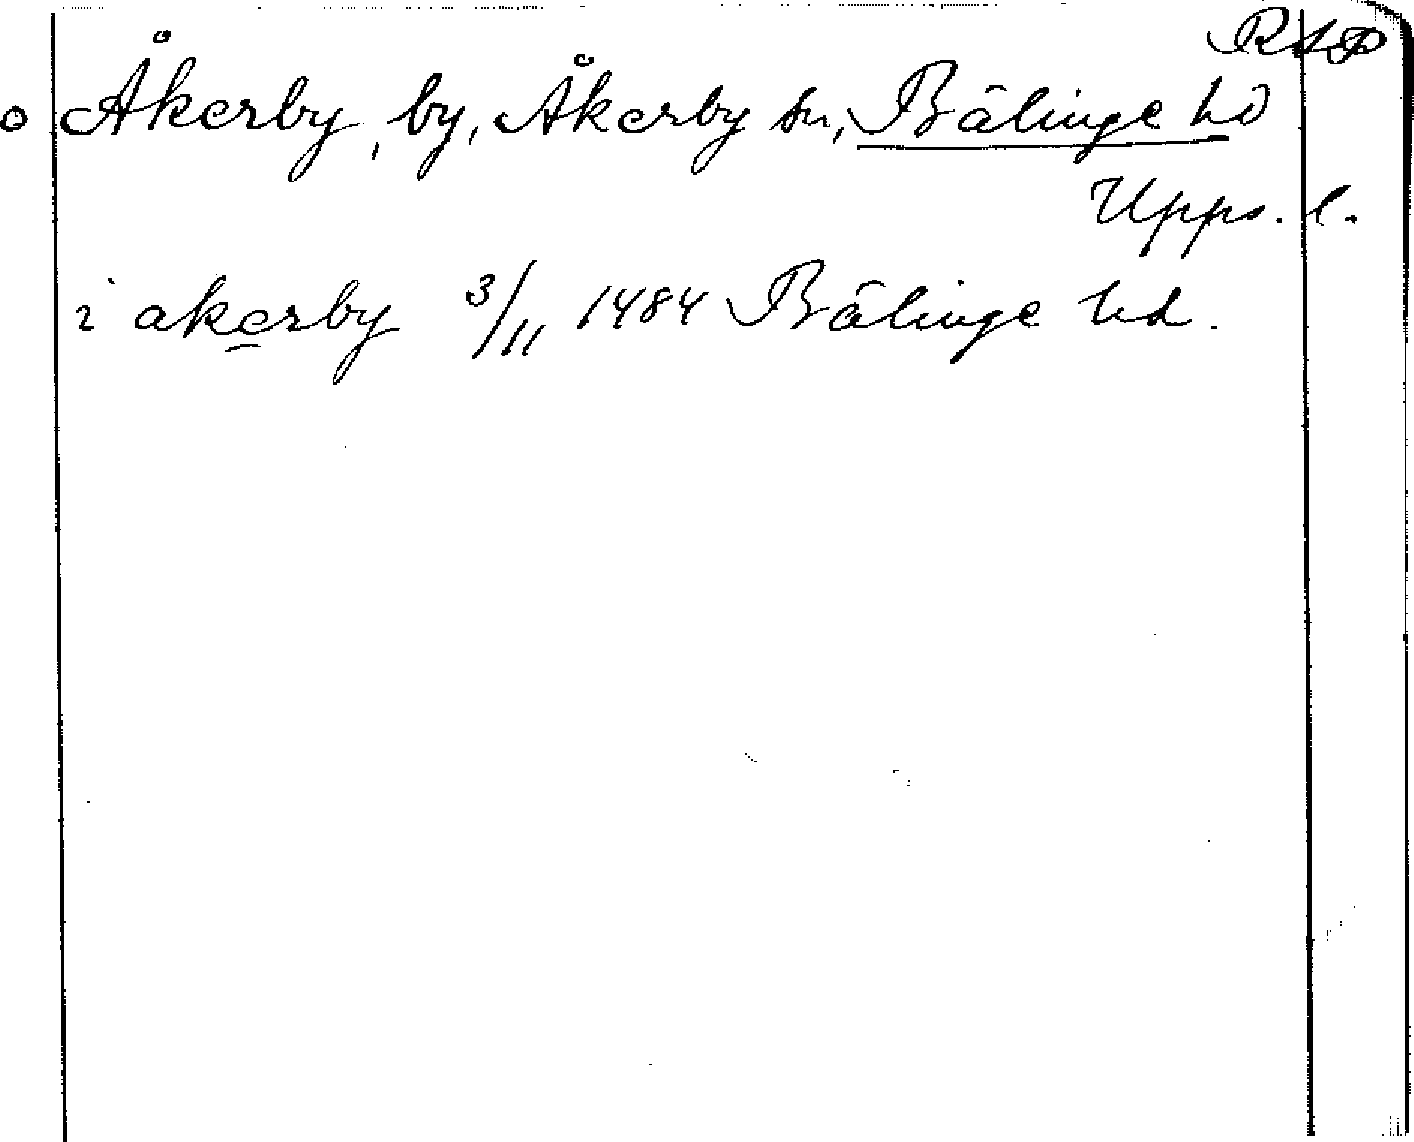 RAP
o Åkerby, by, Åkerby sn, Bälinge hd
Upps. l.
i akerby 3/11 1484 Bälinge hd.